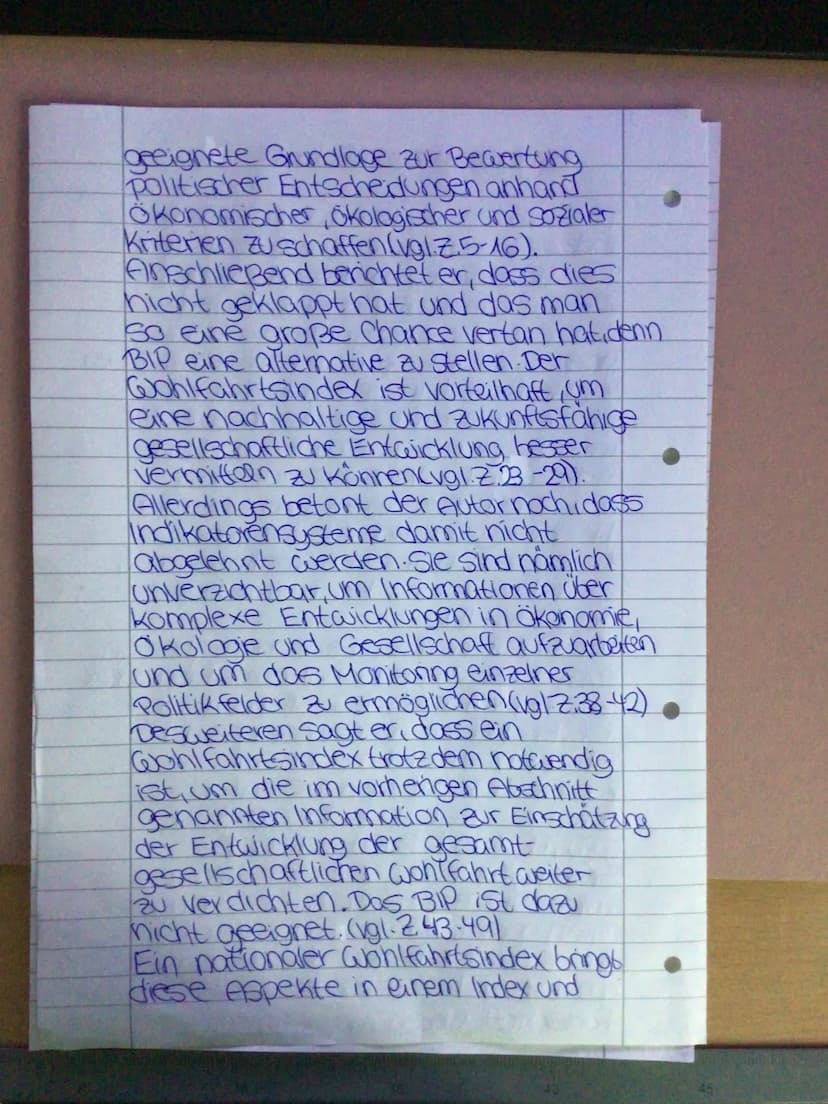 geeignete Grundlage zur Bewertung
politischer Entscheidungen anhand
ökonomischer, ökologischer und sozialer
Kriterien zu schaffen (vgl. Z. 5-16).
Anschließend berichtet er, dass dies
nicht geklappt hat und das man
so eine große Chance vertan hat, denn
BIP eine alternative zu stellen. Der
Wohlfahrtsindex ist vorteilhaft, um
eine nachhaltige und zukunftsfähige
gesellschaftliche Entwicklung besser
vermitteln zu können (vgl. Z. 23-29).
Allerdings betont der Autor noch, dass
Indikatorensysteme damit nicht
abgelehnt werden. Sie sind nämlich
unverzichtbar, um Informationen über
komplexe Entwicklungen in Ökonomie,
Ökologie und Gesellschaft aufzuarbeiten
und um das Monitoring einzelner
Politikfelder zu ermöglichen (vgl. Z. 38-42)
Desweiteren sagt er, dass ein
Wohlfahrtsindex trotzdem notwendig
ist, um die im vorherigen Abschnitt
genannten Information zur Einschätzung
der Entwicklung der gesamt-
gesellschaftlichen Wohlfahrt weiter
zu verdichten. Das BIP ist dazu
nicht geeignet. (vgl. Z. 43-49)
Ein nationaler Wohlfahrtsindex bringt
diese Aspekte in einem Index und